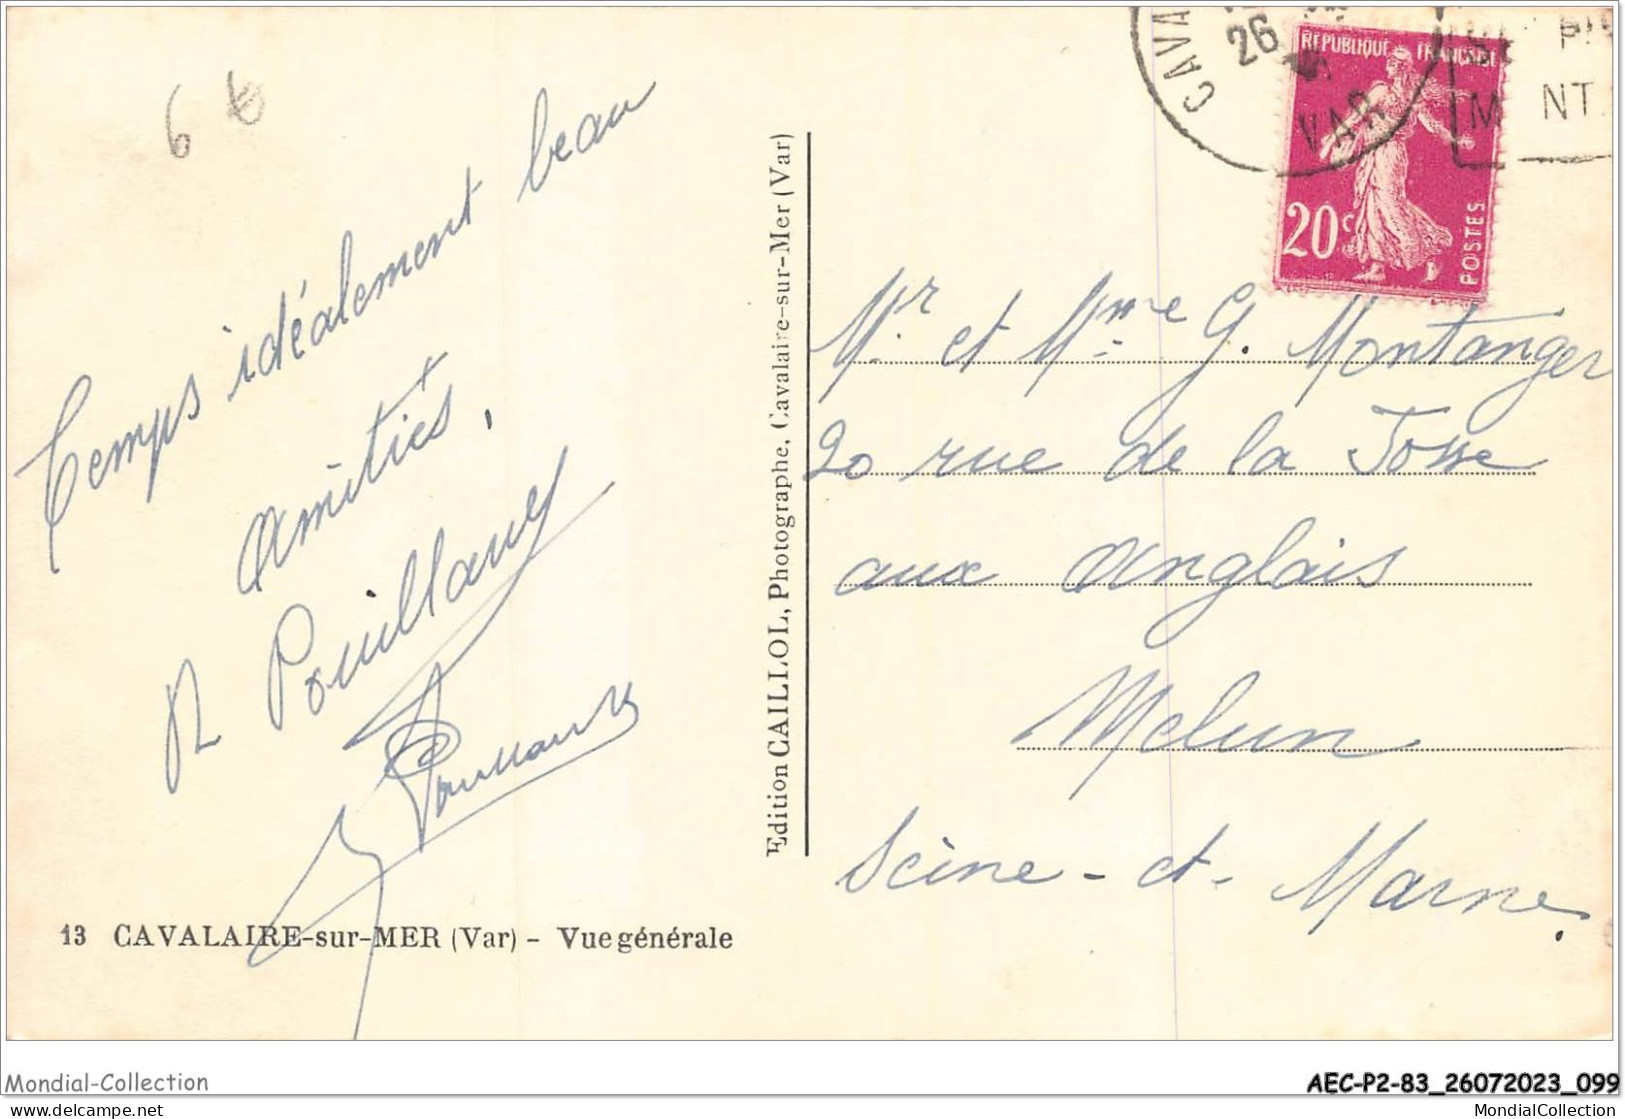 6 €
Temps idéalement beau
Amitiés.
R Pouillauey
Edition CAILLOL, Photographe, Cavalaire-sur-Mer (Var)
13 CAVALAIRE-sur-MER (Var) - Vue générale
CAVA
26
VAR
NT.
REPUBLIQUE FRANÇAISE
20c
POSTES
Mr. et Mme G. Montanger
20 rue de la Fosse
aux Anglais
Melun
Seine-et-Marne.
Mondial-Collection
AEC-P2-83_26072023_099
www.delcampe.net
MondialCollection